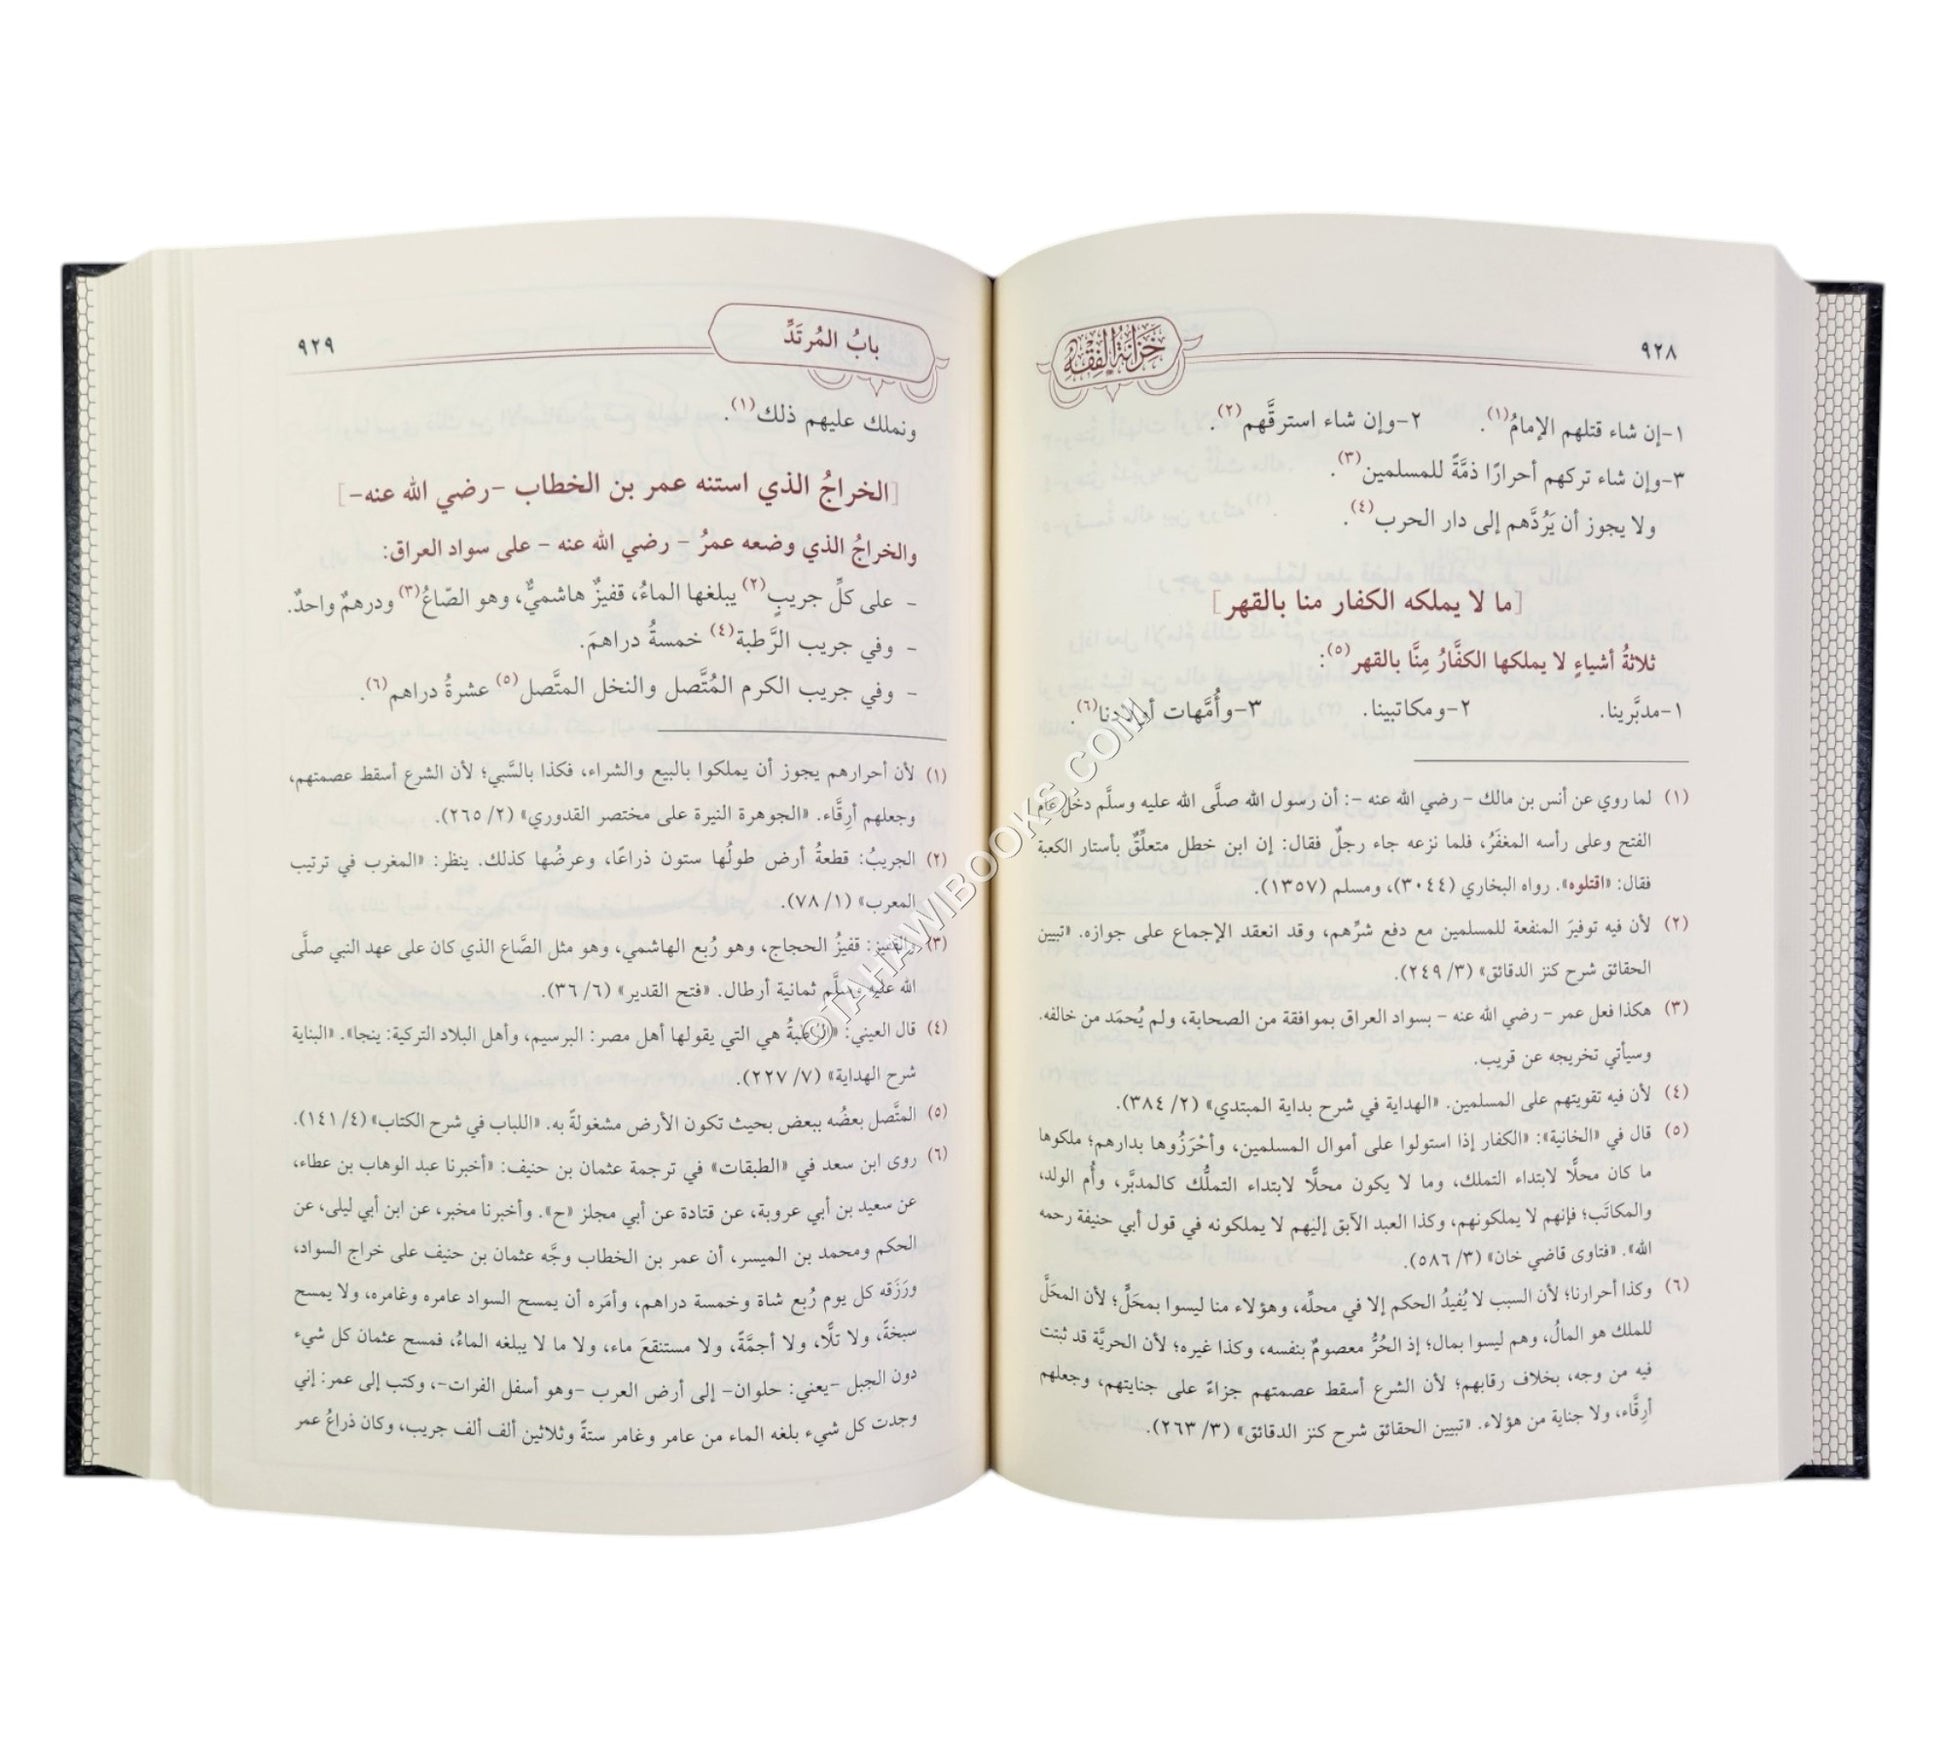 ٩٢٨
خزانة الفقه
١-إن شاء قتلهم الإمامُ(١). ٢-وإن شاء استرقَّهم(٢).
٣-وإن شاء تركهم أحرارًا ذمَّةً للمسلمين(٣).
ولا يجوز أن يَرُدَّهم إلى دار الحرب(٤).
[ما لا يملكه الكفار منا بالقهر]
ثلاثةُ أشياءٍ لا يملكها الكفَّارُ مِنَّا بالقهر(٥):
١-مدبَّرينا. ٢-ومكاتبينا. ٣-وأُمَّهات أولادنا(٦).
(١) لما روي عن أنس بن مالك - رضي الله عنه -: أن رسول الله صلَّى الله عليه وسلَّم دخل عام
الفتح وعلى رأسه المغفَرُ، فلما نزعه جاء رجلٌ فقال: إن ابن خطل متعلِّقٌ بأستار الكعبة
فقال: «اقتلوه». رواه البخاري (٣٠٤٤)، ومسلم (١٣٥٧).
(٢) لأن فيه توفيرَ المنفعة للمسلمين مع دفع شرِّهم، وقد انعقد الإجماع على جوازه. «تبيين
الحقائق شرح كنز الدقائق» (٣/ ٢٤٩).
(٣) هكذا فعل عمر - رضي الله عنه - بسواد العراق بموافقة من الصحابة، ولم يُحمَد من خالفه.
وسيأتي تخريجه عن قريب.
(٤) لأن فيه تقويتهم على المسلمين. «الهداية في شرح بداية المبتدي» (٢/ ٣٨٤).
(٥) قال في «الخانية»: «الكفار إذا استولوا على أموال المسلمين، وأحْرَزُوها بدارهم؛ ملكوها
ما كان محلًّا لابتداء التملك، وما لا يكون محلًّا لابتداء التملُّك كالمدبَّر، وأُم الولد،
والمكاتَب؛ فإنهم لا يملكونهم، وكذا العبد الآبق إليهم لا يملكونه في قول أبي حنيفة رحمه
الله». «فتاوى قاضي خان» (٣/ ٥٨٦).
(٦) وكذا أحرارنا؛ لأن السبب لا يُفيدُ الحكم إلا في محلِّه، وهؤلاء منا ليسوا بمحَلٍّ؛ لأن المحَلَّ
للملك هو المالُ، وهم ليسوا بمال؛ إذ الحُرُّ معصومٌ بنفسه، وكذا غيره؛ لأن الحريَّة قد ثبتت
فيه من وجه، بخلاف رقابهم؛ لأن الشرع أسقط عصمتهم جزاءً على جنايتهم، وجعلهم
أرِقَّاء، ولا جناية من هؤلاء. «تبيين الحقائق شرح كنز الدقائق» (٣/ ٢٦٣).
بابُ المُرتَدِّ
٩٢٩
ونملك عليهم ذلك(١).
[الخراجُ الذي استنه عمر بن الخطاب -رضي الله عنه-]
والخراجُ الذي وضعه عمرُ - رضي الله عنه - على سواد العراق:
- على كلِّ جريبٍ(٢) يبلغها الماءُ، قفيزٌ هاشميٌّ، وهو الصّاعُ(٣) ودرهمٌ واحدٌ.
- وفي جريب الرَّطبة(٤) خمسةُ دراهمَ.
- وفي جريب الكرم المُتَّصل والنخل المتَّصل(٥) عشرةُ دراهم(٦).
(١) لأن أحرارهم يجوز أن يملكوا بالبيع والشراء، فكذا بالسَّبي؛ لأن الشرع أسقط عصمتهم،
وجعلهم أرِقَّاء. «الجوهرة النيرة على مختصر القدوري» (٢/ ٢٦٥).
(٢) الجريبُ: قطعةُ أرض طولُها ستون ذراعًا، وعرضُها كذلك. ينظر: «المغرب في ترتيب
المعرب» (١/ ٧٨).
(٣) والقفيز: قفيزُ الحجاج، وهو رُبع الهاشمي، وهو مثل الصَّاع الذي كان على عهد النبي صلَّى
الله عليه وسلَّم ثمانية أرطال. «فتح القدير» (٦/ ٣٦).
(٤) قال العيني: «الرطبةُ هي التي يقولها أهل مصر: البرسيم، وأهل البلاد التركية: ينجا». «البناية
شرح الهداية» (٧/ ٢٢٧).
(٥) المتَّصل بعضُه ببعض بحيث تكون الأرض مشغولةً به. «اللباب في شرح الكتاب» (٤/ ١٤١).
(٦) روى ابن سعد في «الطبقات» في ترجمة عثمان بن حنيف: «أخبرنا عبد الوهاب بن عطاء،
عن سعيد بن أبي عروبة، عن قتادة عن أبي مجلز «ح». وأخبرنا مخبر، عن ابن أبي ليلى، عن
الحكم ومحمد بن الميسر، أن عمر بن الخطاب وجَّه عثمان بن حنيف على خراج السواد،
ورَزَقه كل يوم رُبع شاة وخمسة دراهم، وأمَره أن يمسح السواد عامره وغامره، ولا يمسح
سبخةً، ولا تلًّا، ولا أجمَّةً، ولا مستنقعَ ماء، ولا ما لا يبلغه الماءُ، فمسح عثمان كل شيء
دون الجبل -يعني: حلوان- إلى أرض العرب -وهو أسفل الفرات-، وكتب إلى عمر: إني
وجدت كل شيء بلغه الماء من عامر وغامر ستةً وثلاثين ألف ألف جريب، وكان ذراعُ عمر
©TAHAWIBOOKS.COM